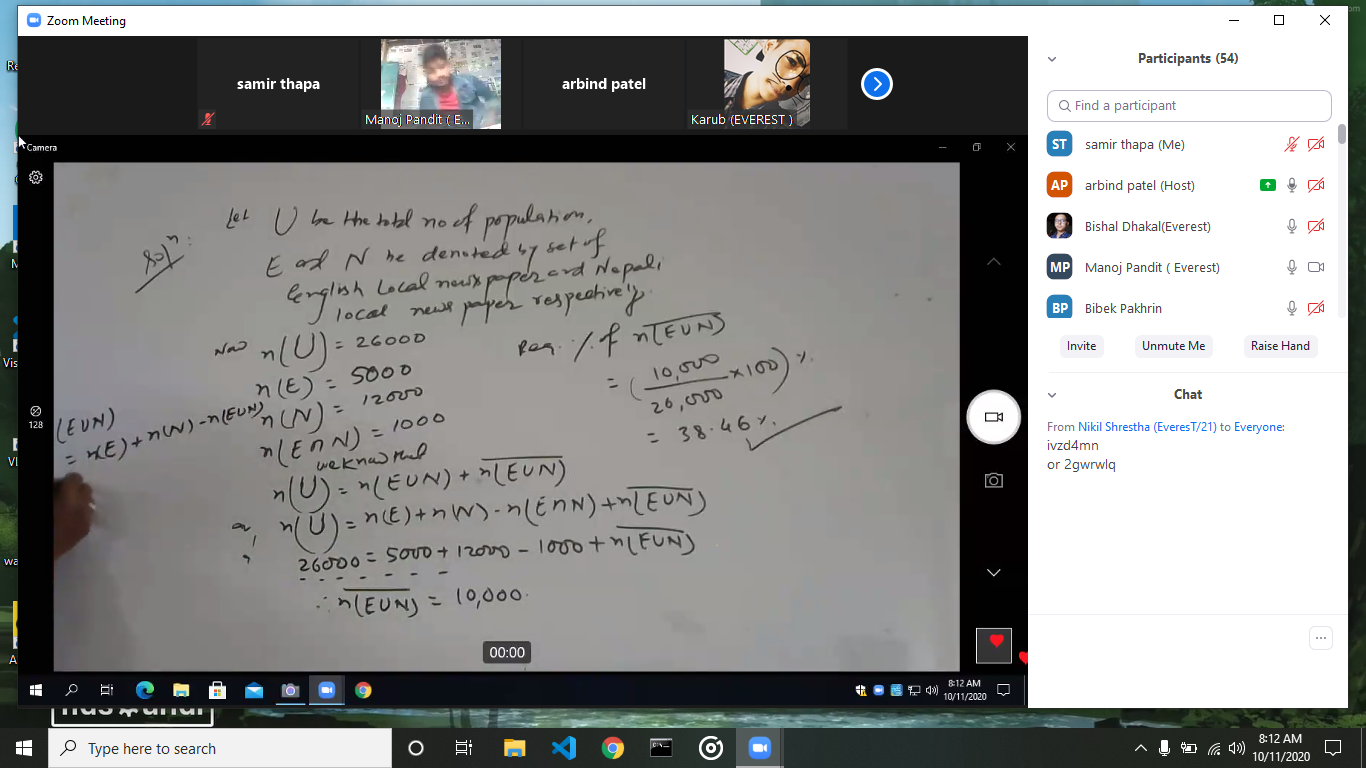 Zoom Meeting
samir thapa
Manoj Pandit ( E...
arbind patel
Karub (EVEREST )
Camera
128
Soln:
Let U be the total no of population.
E and N be denoted by set of
English Local newspaper and Nepali
local news paper respectively.
Now n(U) = 26000
n(E) = 5000
n(N) = 12000
n(E∩N) = 1000
we know that
n(U) = n(EUN) + n(EUN)
or, n(U) = n(E) + n(N) - n(E∩N) + n(EUN)
26000 = 5000 + 12000 - 1000 + n(EUN)
∴ n(EUN) = 10,000.
(EUN)
= n(E) + n(N) - n(EUN)
Req. % of n(EUN)
= (10,000/26,000 × 100) %.
= 38.46 %.
00:00
8:12 AM
10/11/2020
Participants (54)
Find a participant
ST samir thapa (Me)
AP arbind patel (Host)
Bishal Dhakal(Everest)
MP Manoj Pandit ( Everest)
BP Bibek Pakhrin
Invite Unmute Me Raise Hand
Chat
From Nikil Shrestha (EveresT/21) to Everyone:
ivzd4mn
or 2gwrwlq
Type here to search
8:12 AM
10/11/2020